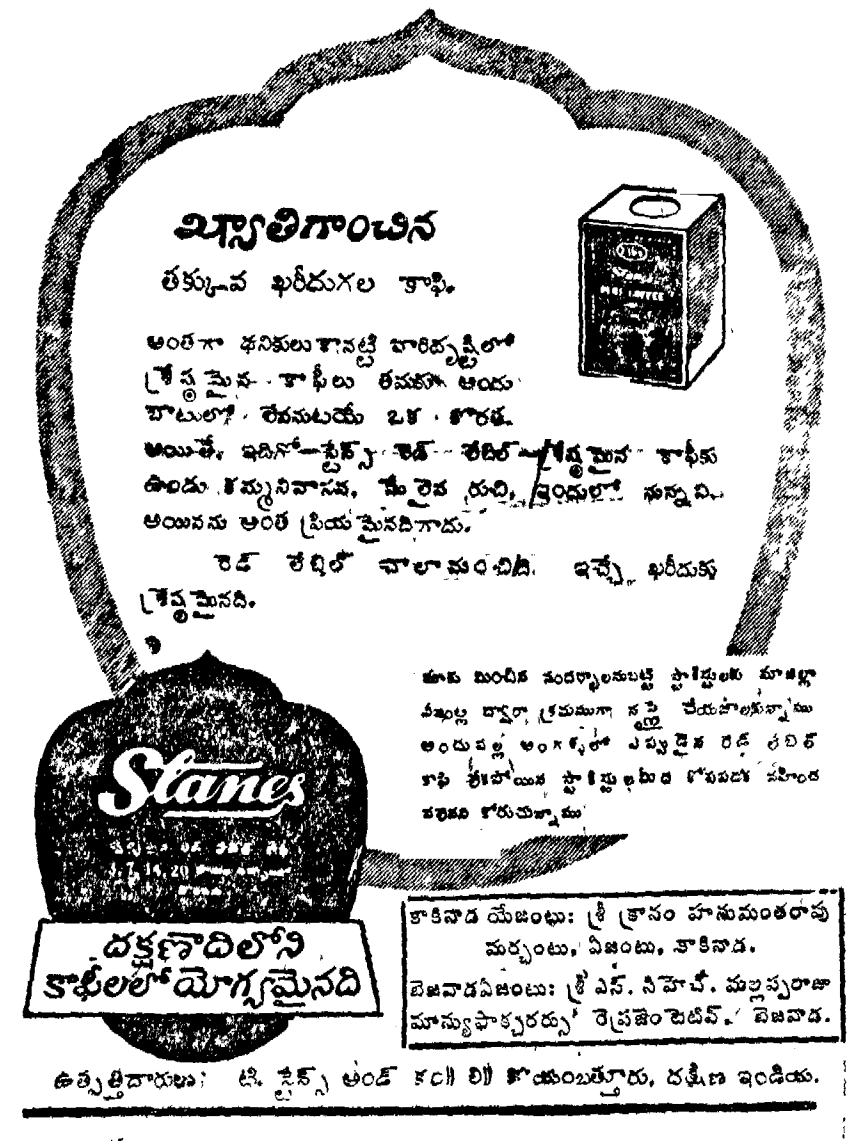 ఖ్యాతిగాంచిన
తక్కువ ఖరీదుగల కాఫి.
అంతగా ధనికులుకానట్టి వారిదృష్టిలో
శ్రేష్ఠమైన కాఫీలు తమకు అందు
బాటులో లేవనుటయే ఒక కొరత.
అయితే, ఇదిగో—స్టేన్స్ రెడ్ లేబిల్—శ్రేష్ఠమైన కాఫీకు
ఉండు కమ్మనివాసన, మేలైన రుచి, ఇందులో నున్నవి.
అయినను అంత ప్రియమైనదిగాదు.
రెడ్ లేబిల్ చాలామంచిది. ఇచ్చే ఖరీదుకు
శ్రేష్ఠమైనది.
మాకు మించిన సందర్భాలనుబట్టి స్టాకిస్టులకు మాజిల్లా
ఏజంట్ల ద్వారా క్రమముగా సప్లై చేయజాలకున్నాము
అందువల్ల అంగళ్ళలో ఎప్పుడైన రెడ్ లేబిల్
కాఫి లేకపోయిన స్టాకిస్టులమీద కోపపడక సహించ
వలెనని కోరుచున్నాము
Stanes
7, 14, 20
దక్షిణాదిలోని
కాఫీలలో యోగ్యమైనది
కాకినాడ యేజంటు: శ్రీ క్రానం హనుమంతరావు
మర్చంటు, ఏజంటు, కాకినాడ.
బెజవాడఏజంటు: శ్రీ ఎస్. సిహెచ్. మల్లప్పరాజు
మాన్యుఫాక్చరర్సు రెప్రజెంటెటివ్, బెజవాడ.
ఉత్పత్తిదారులు: టి. స్టేన్స్ అండ్ కం॥ లి॥ కోయంబత్తూరు, దక్షిణ ఇండియ.